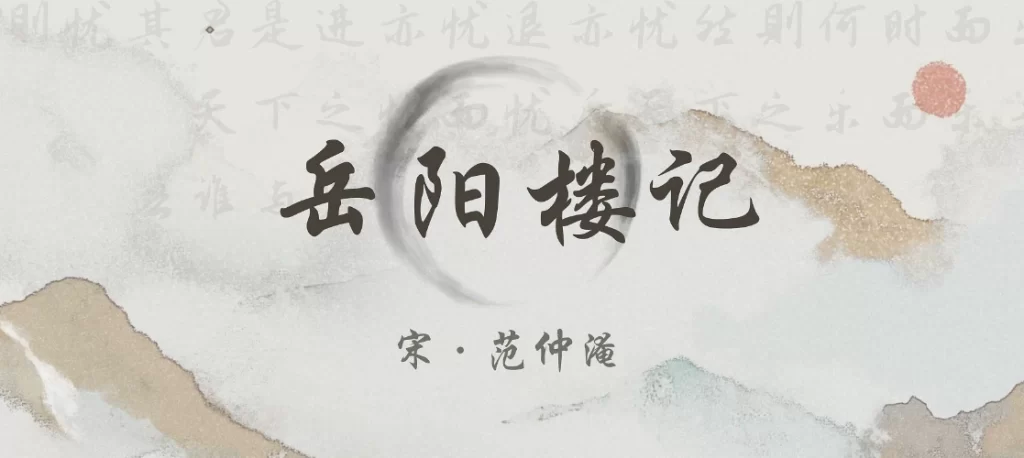 则忧其君是进亦忧退亦忧然則何时而
天下之 而忧 下之乐而乐
谁与
岳阳楼记
宋·范仲淹